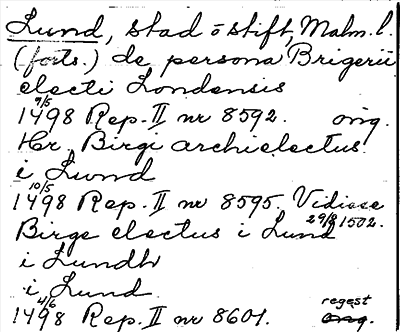 Lund, stad o stift, Malm. l.
(forts.) de persona Brigerii
electi Londensis
9/5
1498 Rep. II nr 8592. orig.
Hr. Birgi archielectus
i Lund
10/5
1498 Rep. II nr 8595. Vidisse
29/8 1502.
Birge electus i Lund
i Lundh
i Lund.
4/6 regest
1498 Rep. II nr 8601. orig.